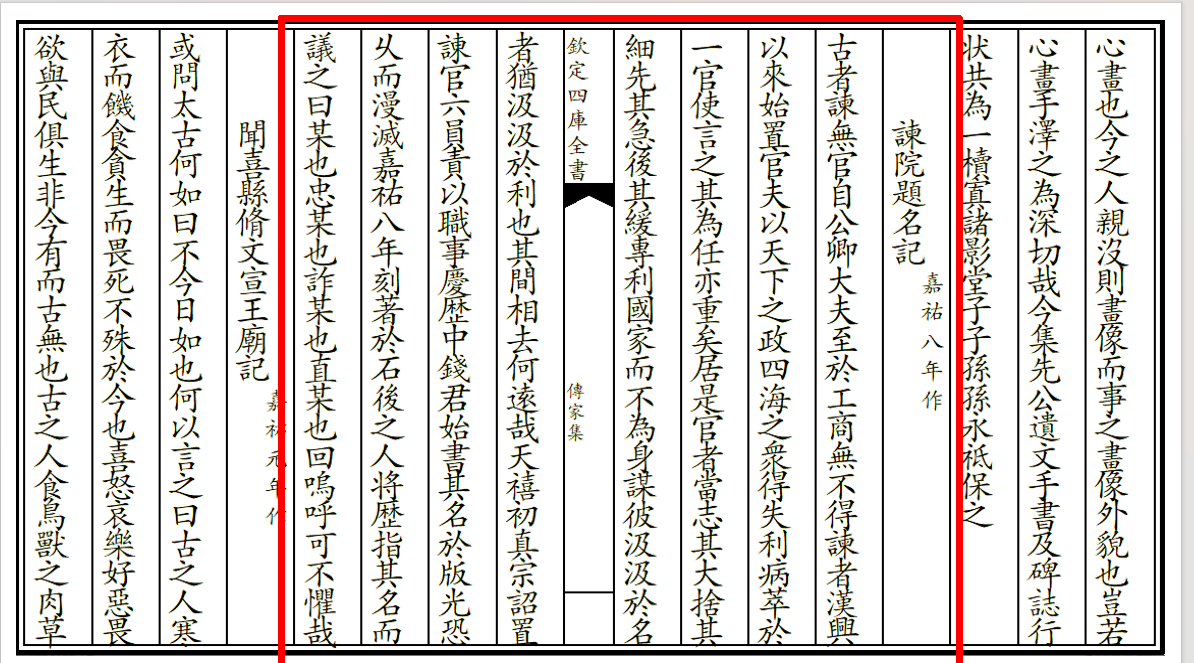 心畫也今之人親沒則畫像而事之畫像外貌也豈若
心畫手澤之為深切哉今集先公遺文手書及碑誌行
状共為一櫝寘諸影堂子子孫孫永祗保之
諫院題名記 嘉祐八年作
古者諫無官自公卿大夫至於工商無不得諫者漢興
以來始置官夫以天下之政四海之衆得失利病萃於
一官使言之其為任亦重矣居是官者當志其大捨其
細先其急後其緩專利國家而不為身謀彼汲汲於名
欽定四庫全書
傳家集
者猶汲汲於利也其間相去何遠哉天禧初真宗詔置
諫官六員責以職事慶歴中錢君始書其名於版光恐
乆而漫滅嘉祐八年刻著於石後之人将歴指其名而
議之曰某也忠某也詐某也直某也回嗚呼可不懼哉
聞喜縣脩文宣王廟記 嘉祐元年作
或問太古何如曰不今日如也何以言之曰古之人寒
衣而饑食貪生而畏死不殊於今也喜怒哀樂好惡畏
欲與民俱生非今有而古無也古之人食鳥獸之肉草